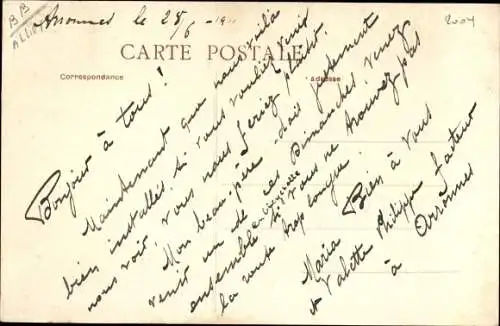 BB
ALLIER
Arronnes le 28/6 - 19
2004
CARTE POSTALE
Correspondance
adresse
Bonjour à tous!
Maintenant que nous voilà
bien installés si vous vouliez venir
nous voir, vous nous feriez plaisir.
Mon beau-père doit justement
venir un de ces Dimanches, venez
ensemble si vous ne trouvez pas
la route trop longue.
Bien à vous
Maria
et Valette Philippe facteur
à Arronnes